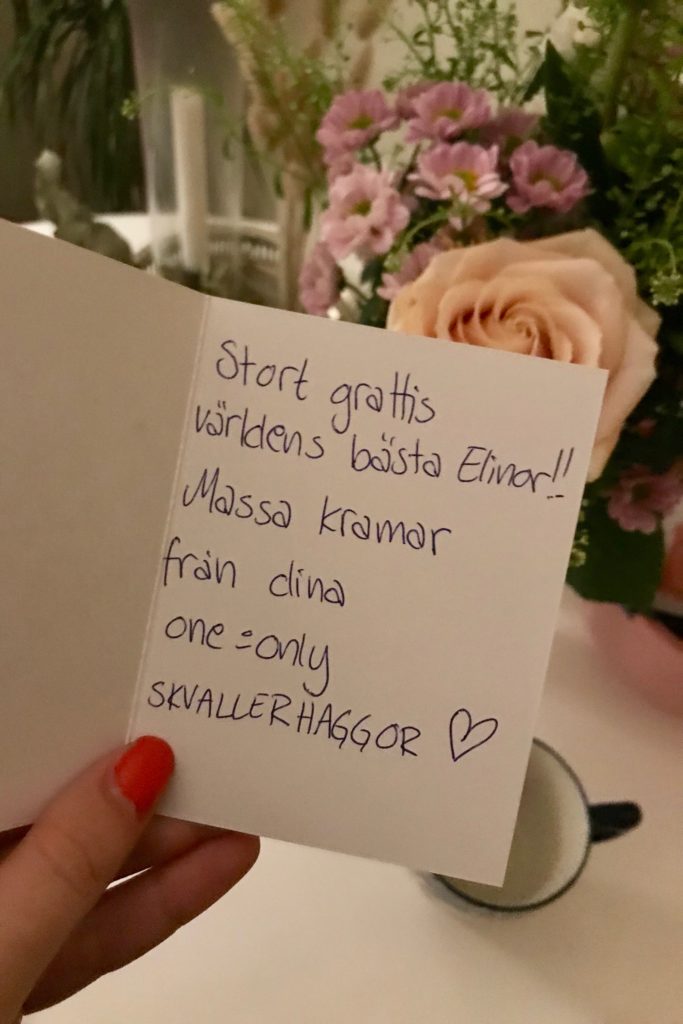 Stort grattis
världens bästa Elinor!!
Massa kramar
från dina
one & only
SKVALLERHAGGOR ♡